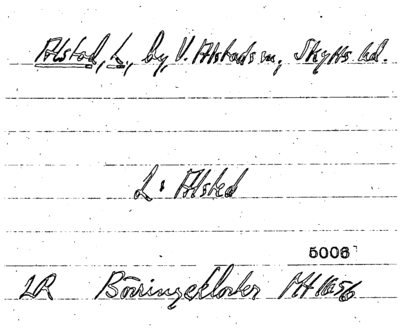 Alstad, L., by, V. Alstads sn, Skytts hd.
L: Alsted
5006
LR Börringekloster MH 1656